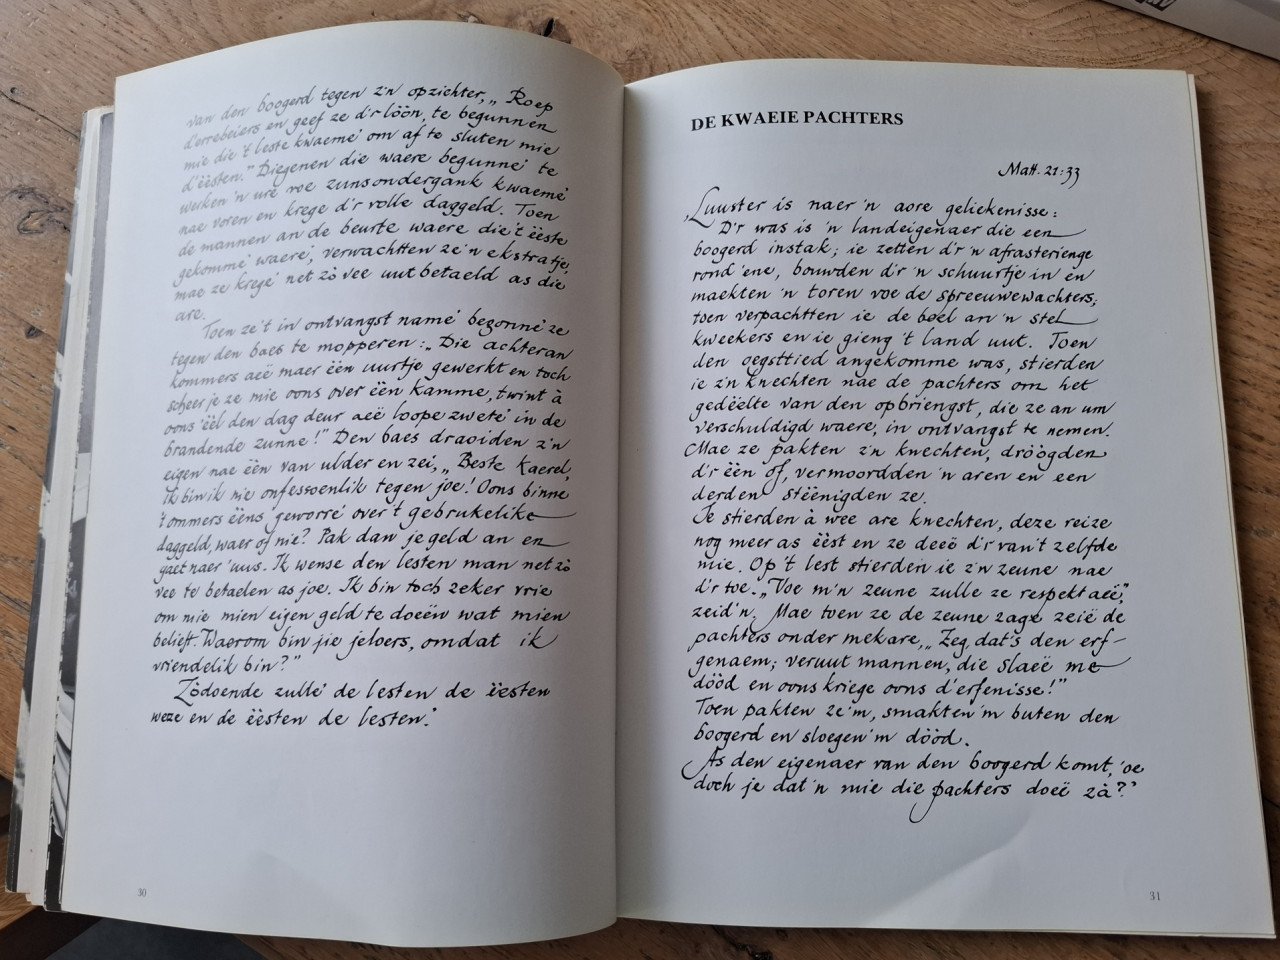 van den boogerd tegen z'n opzichter, „Roep
d'errebeiers en geef ze d'r lòòn, te begunnen
mie die 't leste kwaemé om af te sluten mie
d'ëësten." Diegenen die waere begunné te
werken 'n ure voe zunsondergank kwaemé
nae voren en krege d'r volle daggeld. Toen
de mannen an de beurte waere die 't ëëste
gekommé waere, verwachtten ze 'n ekstratje,
mae ze kregé net zò vee uutbetaeld as die
are.
Toen ze 't in ontvangst namé begonné ze
tegen den baes te mopperen: „Die achteran
kommers aeë maer ëën uurtje gewerkt en toch
scheer je ze mie oons over ëën kamme, twint à
oons 'ëël den dag deur aeë loope zweté in de
brandende zunne!" Den baes draoiden z'n
eigen nae ëën van ulder en zei, „Beste kaerel,
ik bin ik nie onfessoenlik tegen joe! Oons binne
't ommers ëëns geworré over 't gebrukelike
daggeld, waer of nie? Pak dan je geld an en
gaet naer 'uus. Ik wense den lesten man net zò
vee te betaelen as joe. Ik bin toch zeker vrie
om mie mien eigen geld te doeën wat mien
belieft. Waerom bin jie jeloers, omdat ik
vriendelik bin?"
Zòdoende zullé de lesten de ëësten
weze en de ëësten de lesten.'
30
DE KWAEIE PACHTERS
Matt. 21:33
'Luuster is naer 'n aore geliekenisse:
D'r was is 'n landeigenaer die een
boogerd instak; ie zetten d'r 'n afrasterienge
rond 'ene, bouwden d'r 'n schuurtje in en
maekten 'n toren voe de spreeuwewachters;
toen verpachtten ie de boel an 'n stel
kweekers en ie gieng 't land uut. Toen
den oegsttied angekomme was, stierden
ie z'n knechten nae de pachters om het
gedëëlte van den opbriengst, die ze an um
verschuldigd waere, in ontvangst te nemen.
Mae ze pakten z'n knechten, dròògden
d'r ëën of, vermoordden 'n aren en een
derden stëënigden ze.
Ie stierden à wee are knechten, deze reize
nog meer as ëëst en ze deeë d'r van 't zelfde
mie. Op 't lest stierden ie z'n zeune nae
d'r toe. „Voe m'n zeune zulle ze respekt aeë",
zeid'n. Mae toen ze de zeune zage zeië de
pachters onder mekare, „Zeg, dat's den erf-
genaem; veruut mannen, die slaeë me
dòòd en oons kriege oons d'erfenisse!"
Toen pakten ze 'm, smakten 'm buten den
boogerd en sloegen 'm dòòd.
As den eigenaer van den boogerd komt, 'oe
doch je dat 'n mie die pachters doeë zà?'
31